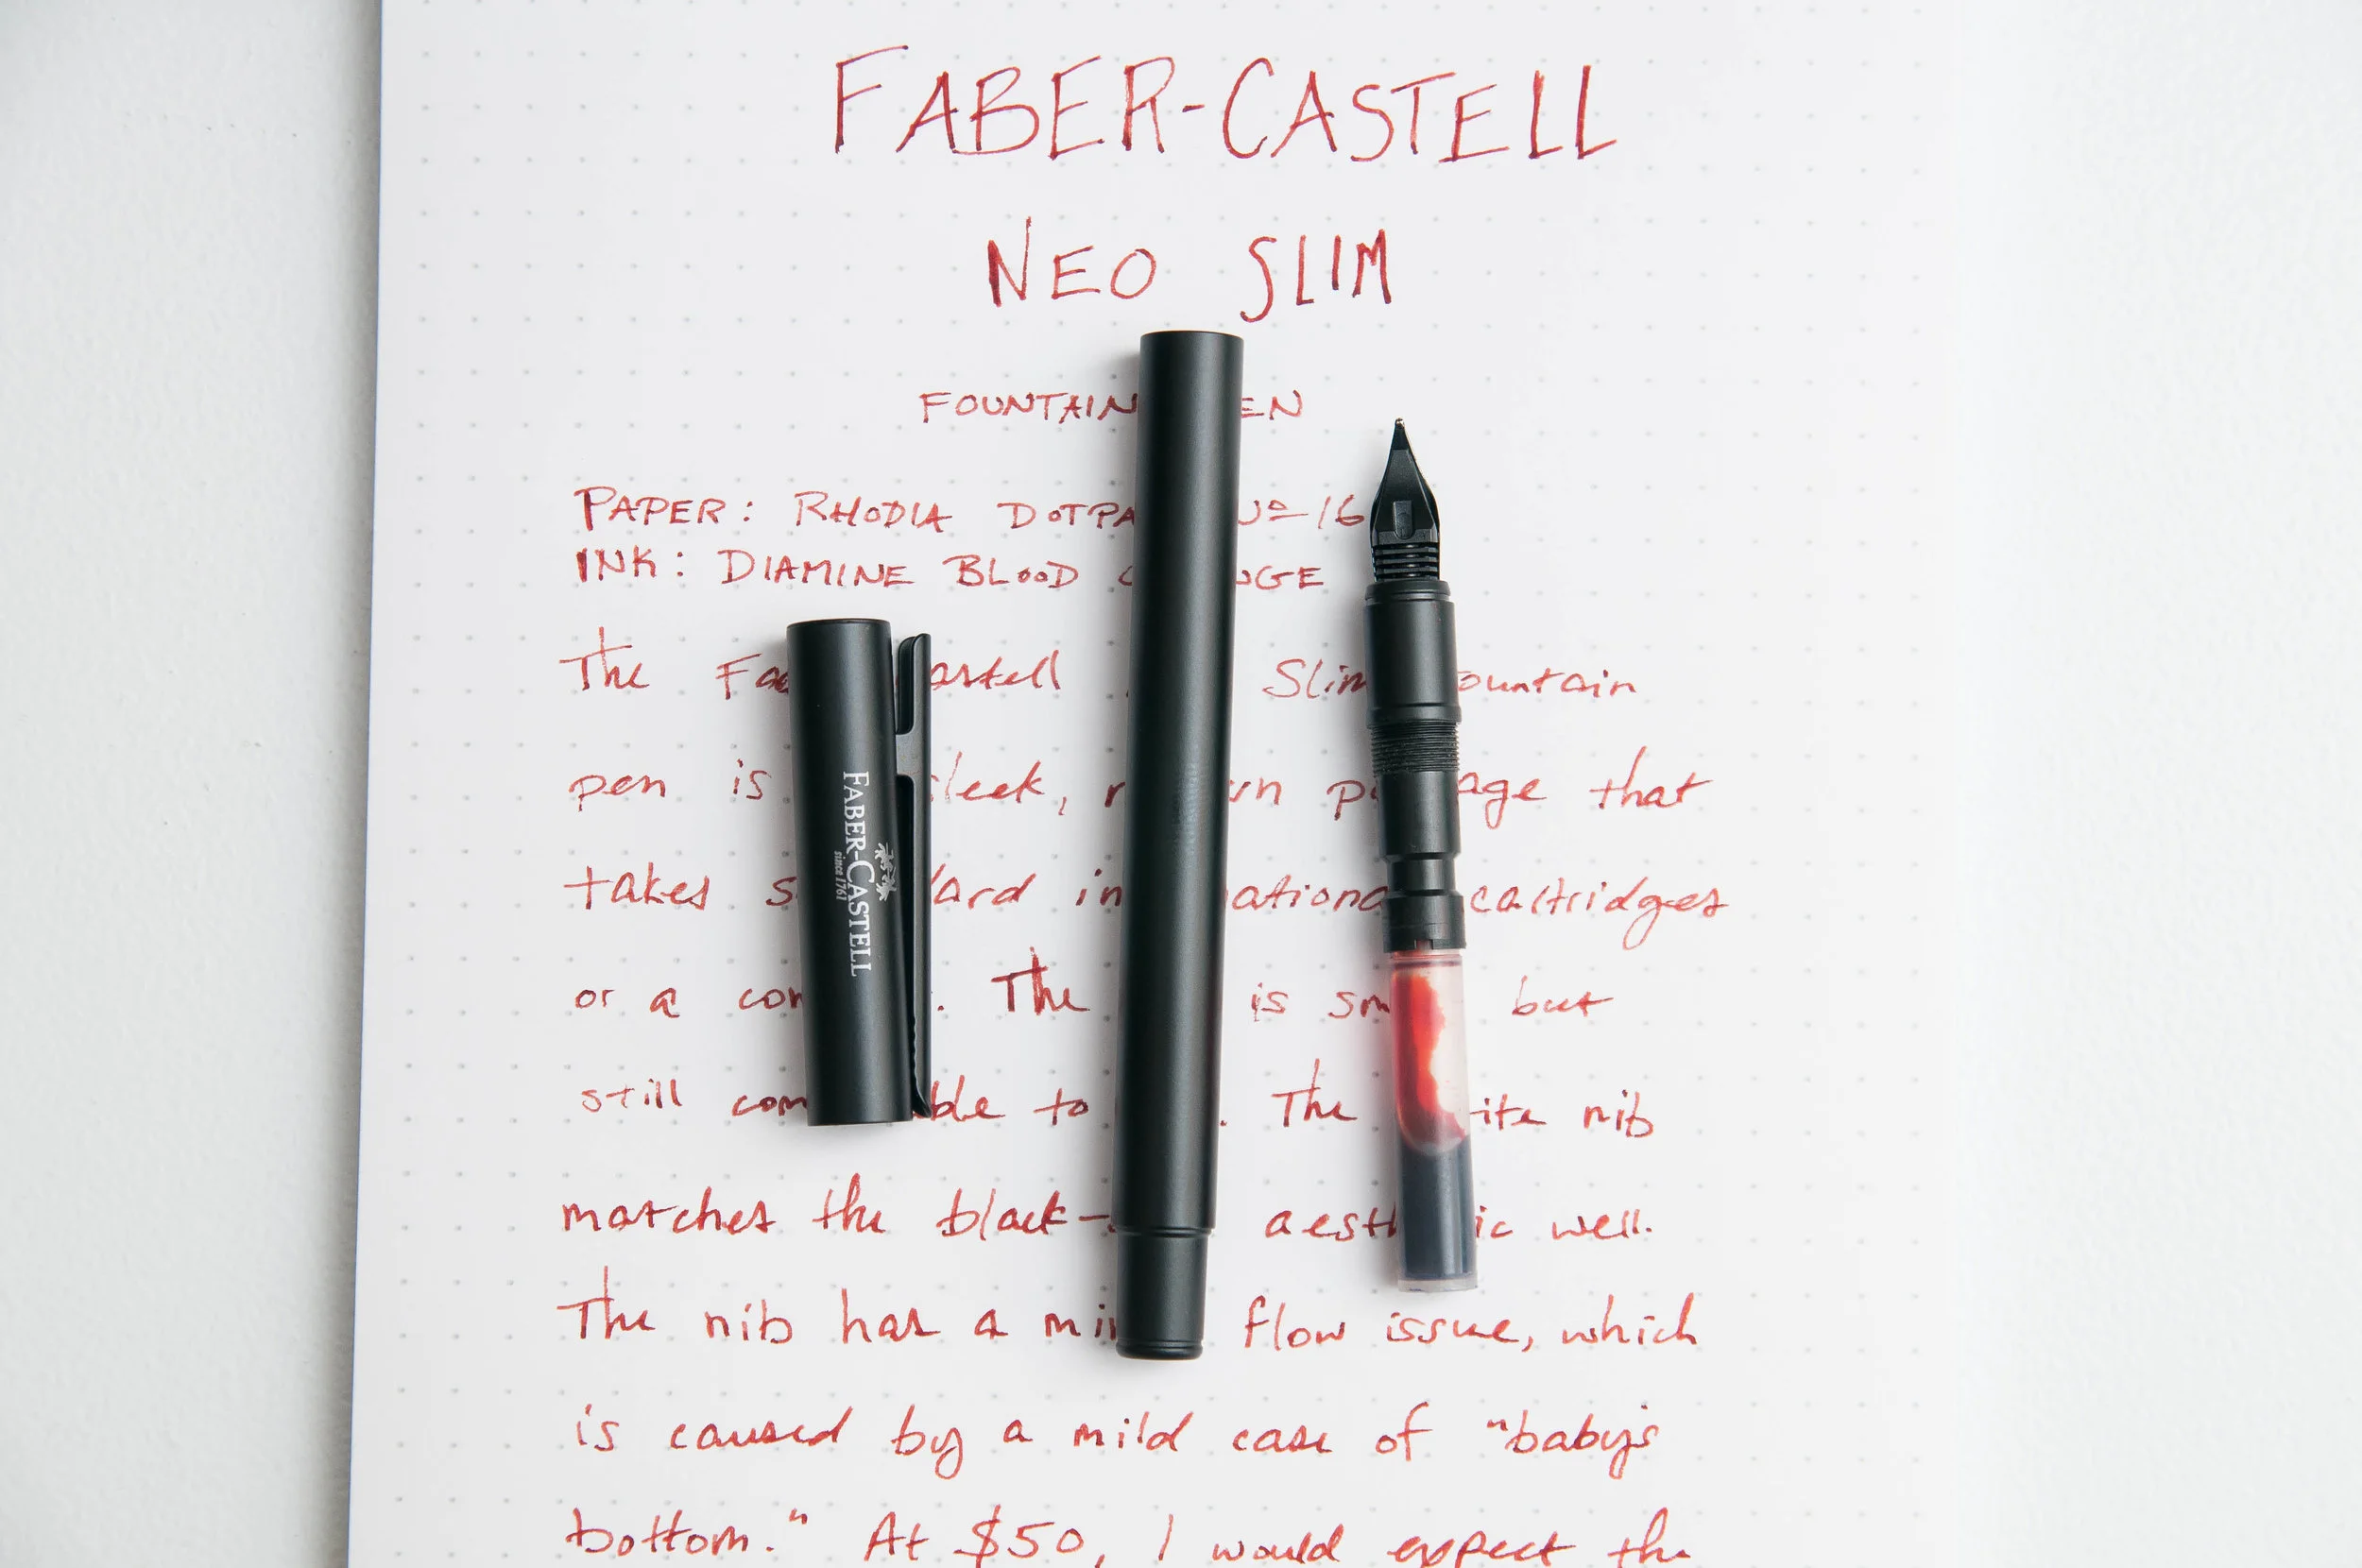 FABER-CASTELL
NEO SLIM
FOUNTAIN EN
PAPER: RHODIA DOTPA Nº 16
INK: DIAMINE BLOOD NGE
The Fa astell Slim ountain
pen is sleek, r wn p age that
takes s dard in national cartridges
or a con . The is sm but
still com ble to . The ite nib
matches the black- aesth ic well.
The nib has a min flow issue, which
is caused by a mild case of "baby's
bottom." At $50, I would expect the
FABER-CASTELL
since 1761